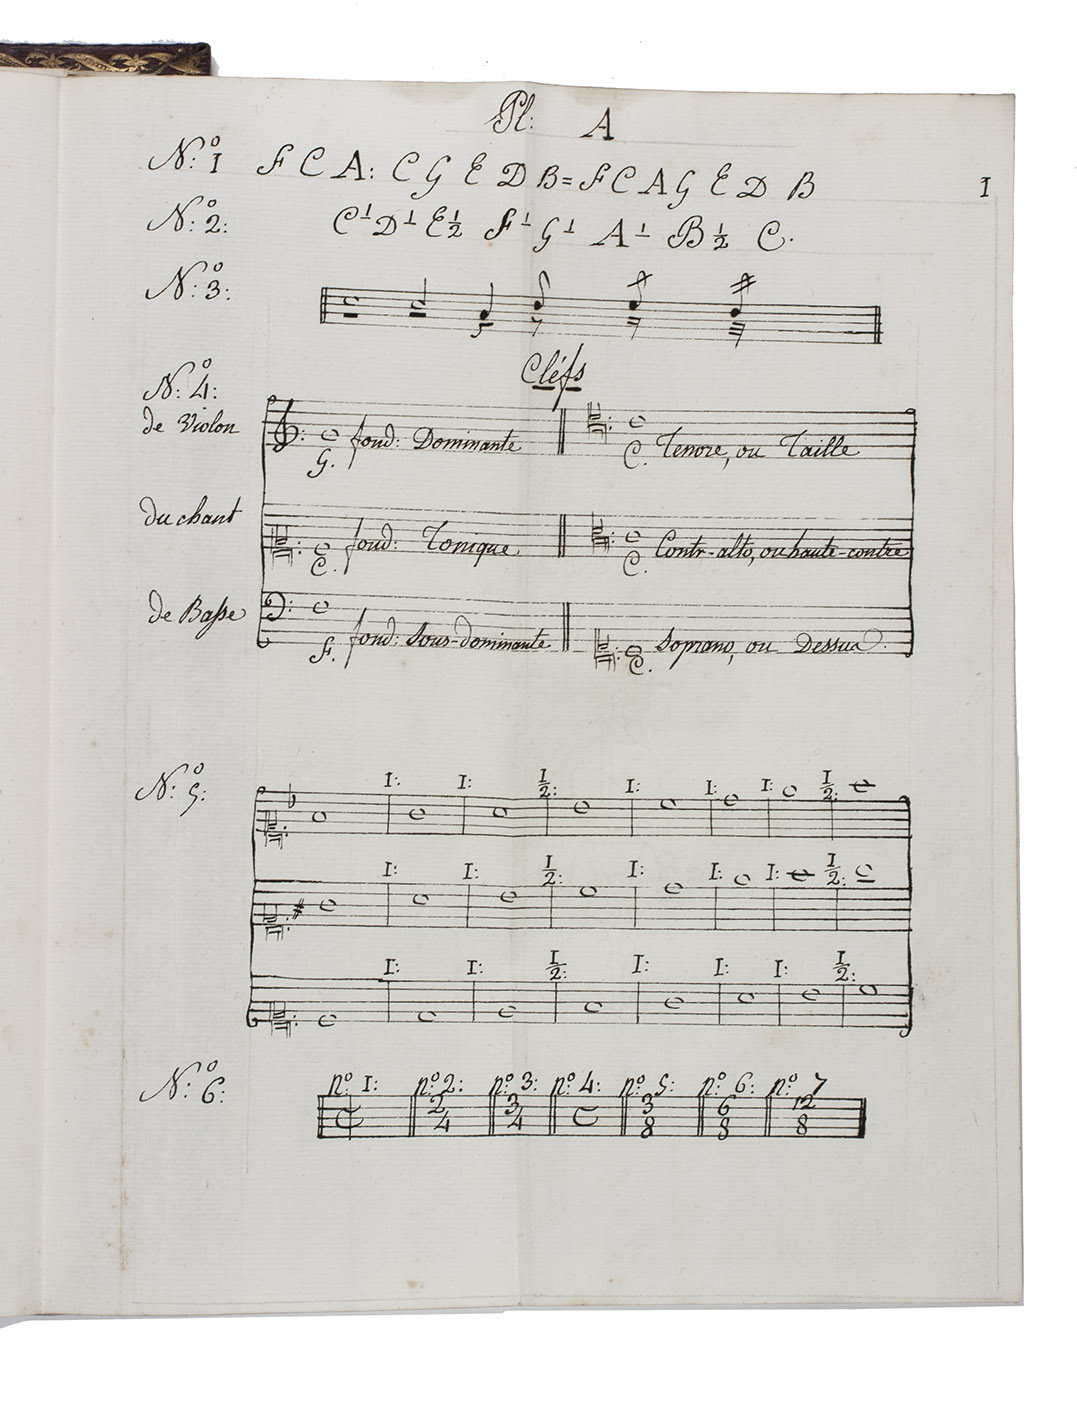 Pl: A
N:º 1 F C A: C G E D B = F C A G E D B
1
N:º 2: C 1 D 1 E 1/2 F 1 G 1 A 1 B 1/2 C.
N:º 3:
Cléfs
N:º 4:
de Violon G. fond: Dominante C. Tenore, ou Taille
du chant C. fond: Tonique C. Contr-alto, ou haute-contre
de Basse F. fond: Sous-dominante C. Soprano, ou Dessus.
N:º 5: 1: 1: 1/2: 1: 1: 1: 1/2:
1: 1: 1/2: 1: 1: 1: 1/2:
1: 1: 1/2: 1: 1: 1: 1/2:
N:º 6: nº 1: nº 2: nº 3: nº 4: nº 5: nº 6: nº 7
C 2/4 3/4 C 3/8 6/8 12/8